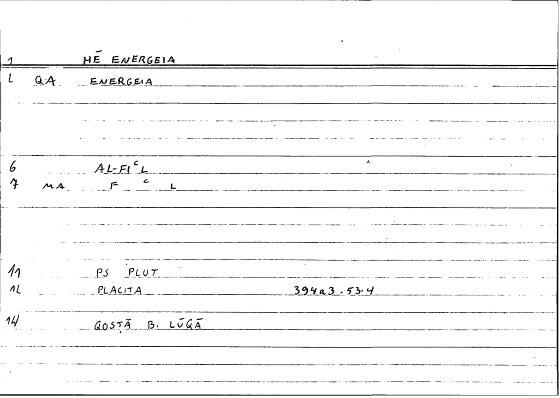 1 HĒ ENERGEIA
2 QA ENERGEIA
6 AL-FIᶜL
7 MA F ᶜ L
11 PS PLUT
12 PLACITA 394a3.53.4
14 QOSṬĀ B. LŪQĀ